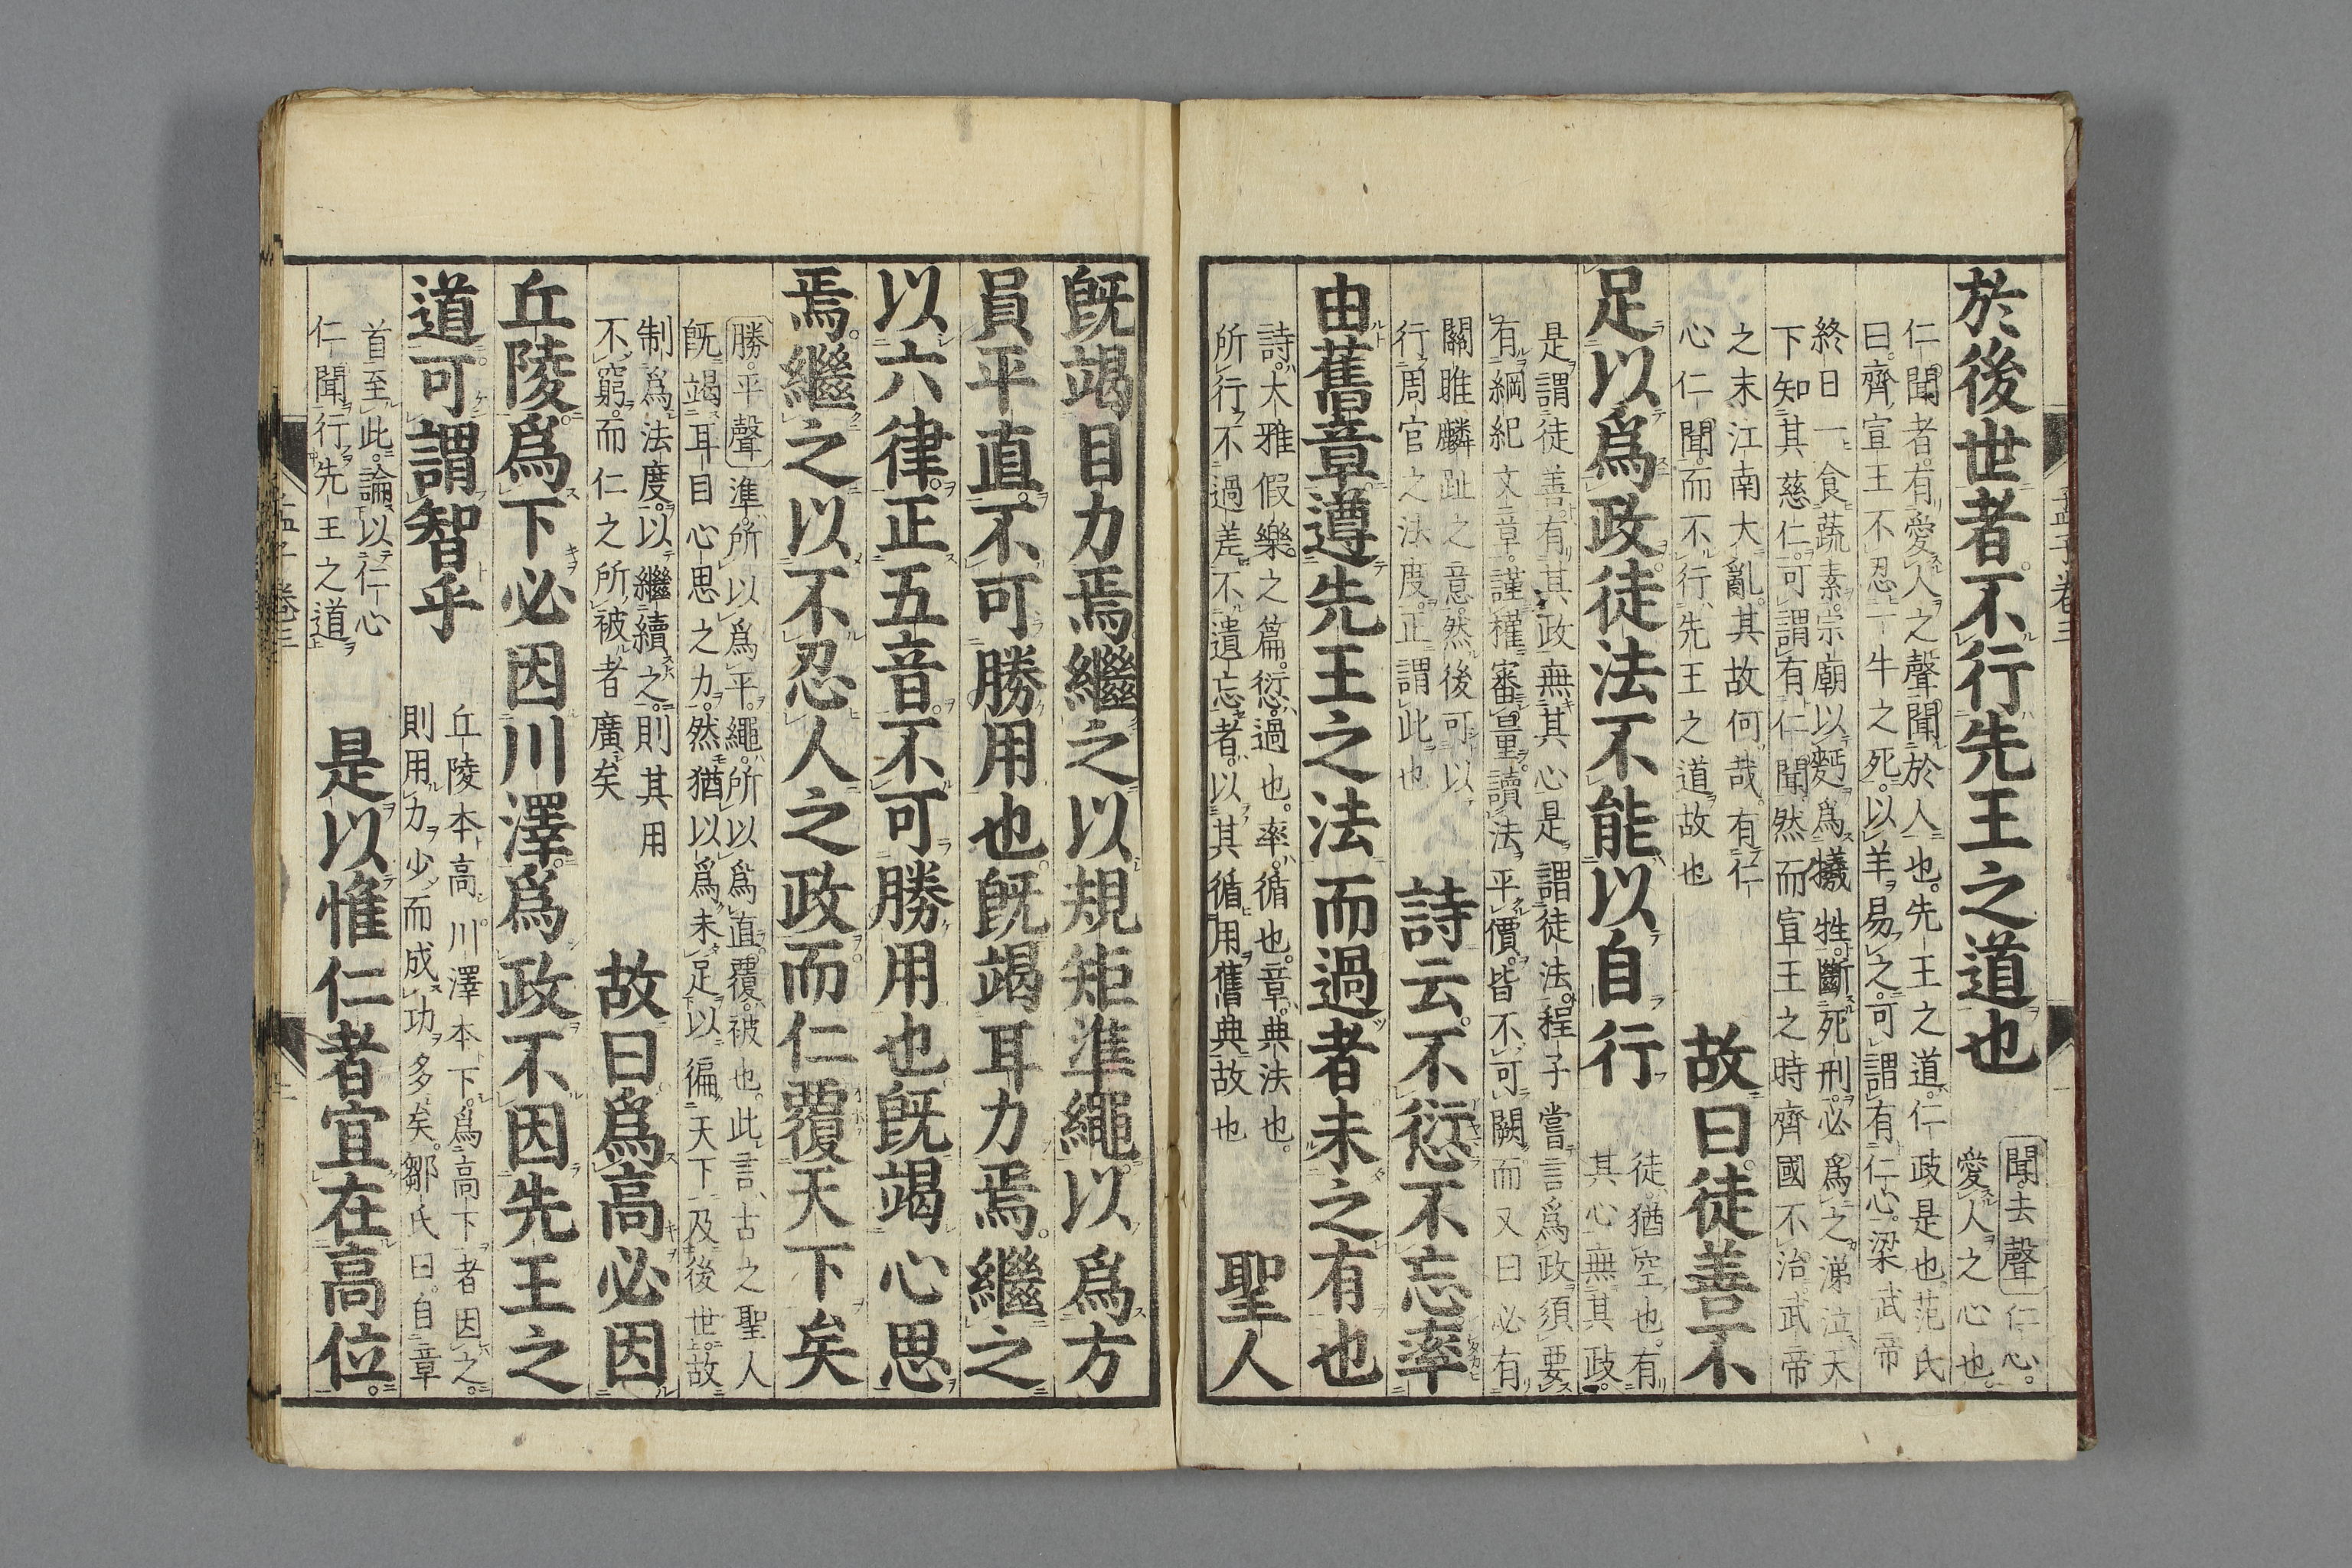 於後世者不行先王之道也
聞去聲仁心
愛人之心也
仁聞者有愛人之聲聞於人也先王之道仁政是也范氏
曰齊宣王不忍一牛之死以羊易之可謂有仁心梁武帝
終日一食蔬素宗廟以麪爲犧牲斷死刑必爲之涕泣天
下知其慈仁可謂有仁聞然而宣王之時齊國不治武帝
之末江南大亂其故何哉有仁
心仁聞而不行先王之道故也
故曰徒善不
足以爲政徒法不能以自行
徒猶空也有
其心無其政
是謂徒善有其政無其心是謂徒法程子嘗言爲政須要
有綱紀文章謹權審量讀法平價皆不可闕而又曰必有
關雎麟趾之意然後可以
行周官之法度正謂此也
詩云不愆不忘率
由舊章遵先王之法而過者未之有也
詩大雅假樂之篇愆過也率循也章典法也
所行不過差不遺忘者以其循用舊典故也
聖人
既竭目力焉繼之以規矩準繩以爲方
員平直不可勝用也既竭耳力焉繼之
以六律正五音不可勝用也既竭心思
焉繼之以不忍人之政而仁覆天下矣
勝平聲準所以爲平繩所以爲直覆被也此言古之聖人
既竭耳目心思之力然猶以爲未足以徧天下及後世故
制爲法度以繼續之則其用
不窮而仁之所被者廣矣
故曰爲高必因
丘陵爲下必因川澤爲政不因先王之
道可謂智乎
丘陵本高川澤本下爲高下者因之
則用力少而成功多矣鄒氏曰自章
首至此論以仁心
仁聞行先王之道
是以惟仁者宜在高位
孟子卷三